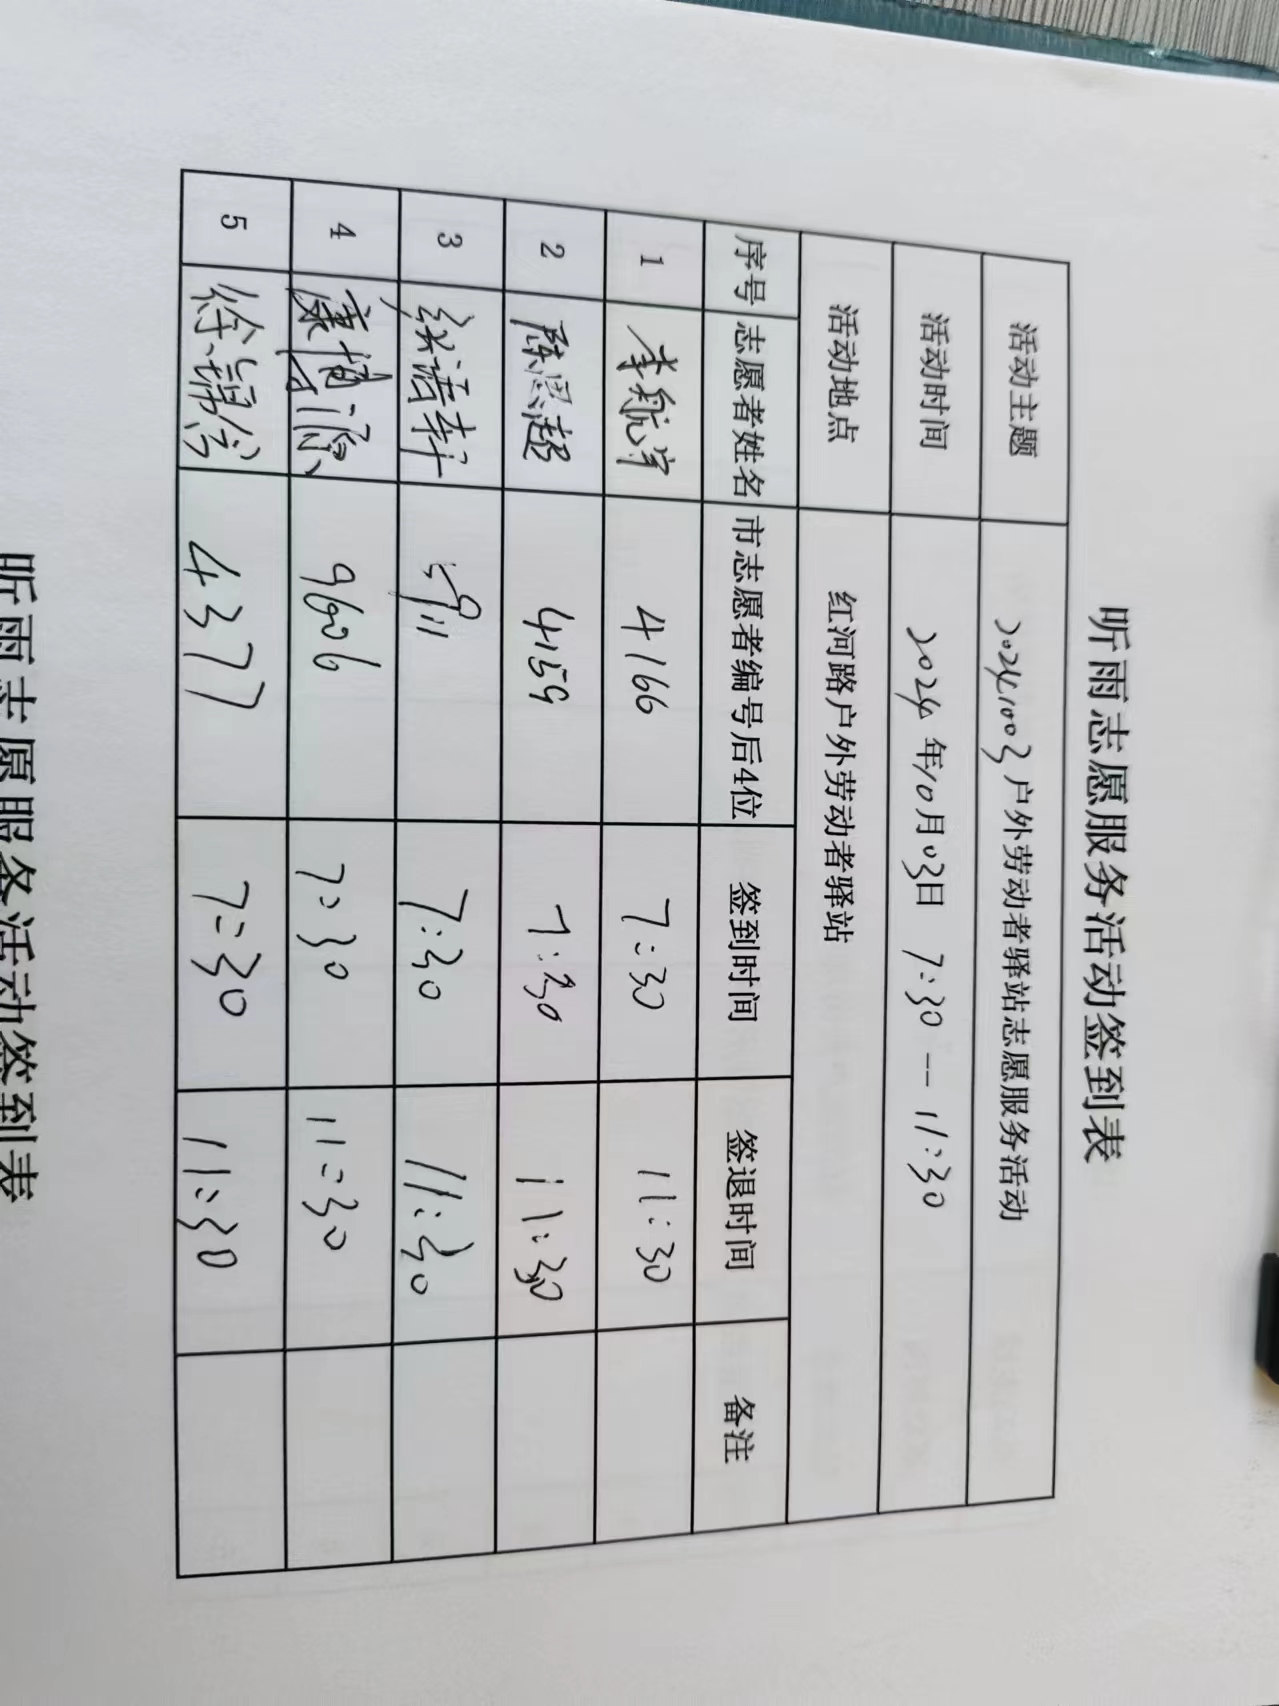 听雨志愿服务活动签到表
活动主题 20241003户外劳动者驿站志愿服务活动
活动时间 2024年10月03日 7:30--11:30
活动地点 红河路户外劳动者驿站
序号 志愿者姓名 市志愿者编号后4位 签到时间 签退时间 备注
1 李航宇 4166 7:30 11:30
2 陈思超 4159 7:30 11:30
3 7:30 11:30
4 9606 7:30 11:30
5 4377 7:30 11:30
听雨志愿服务活动签到表